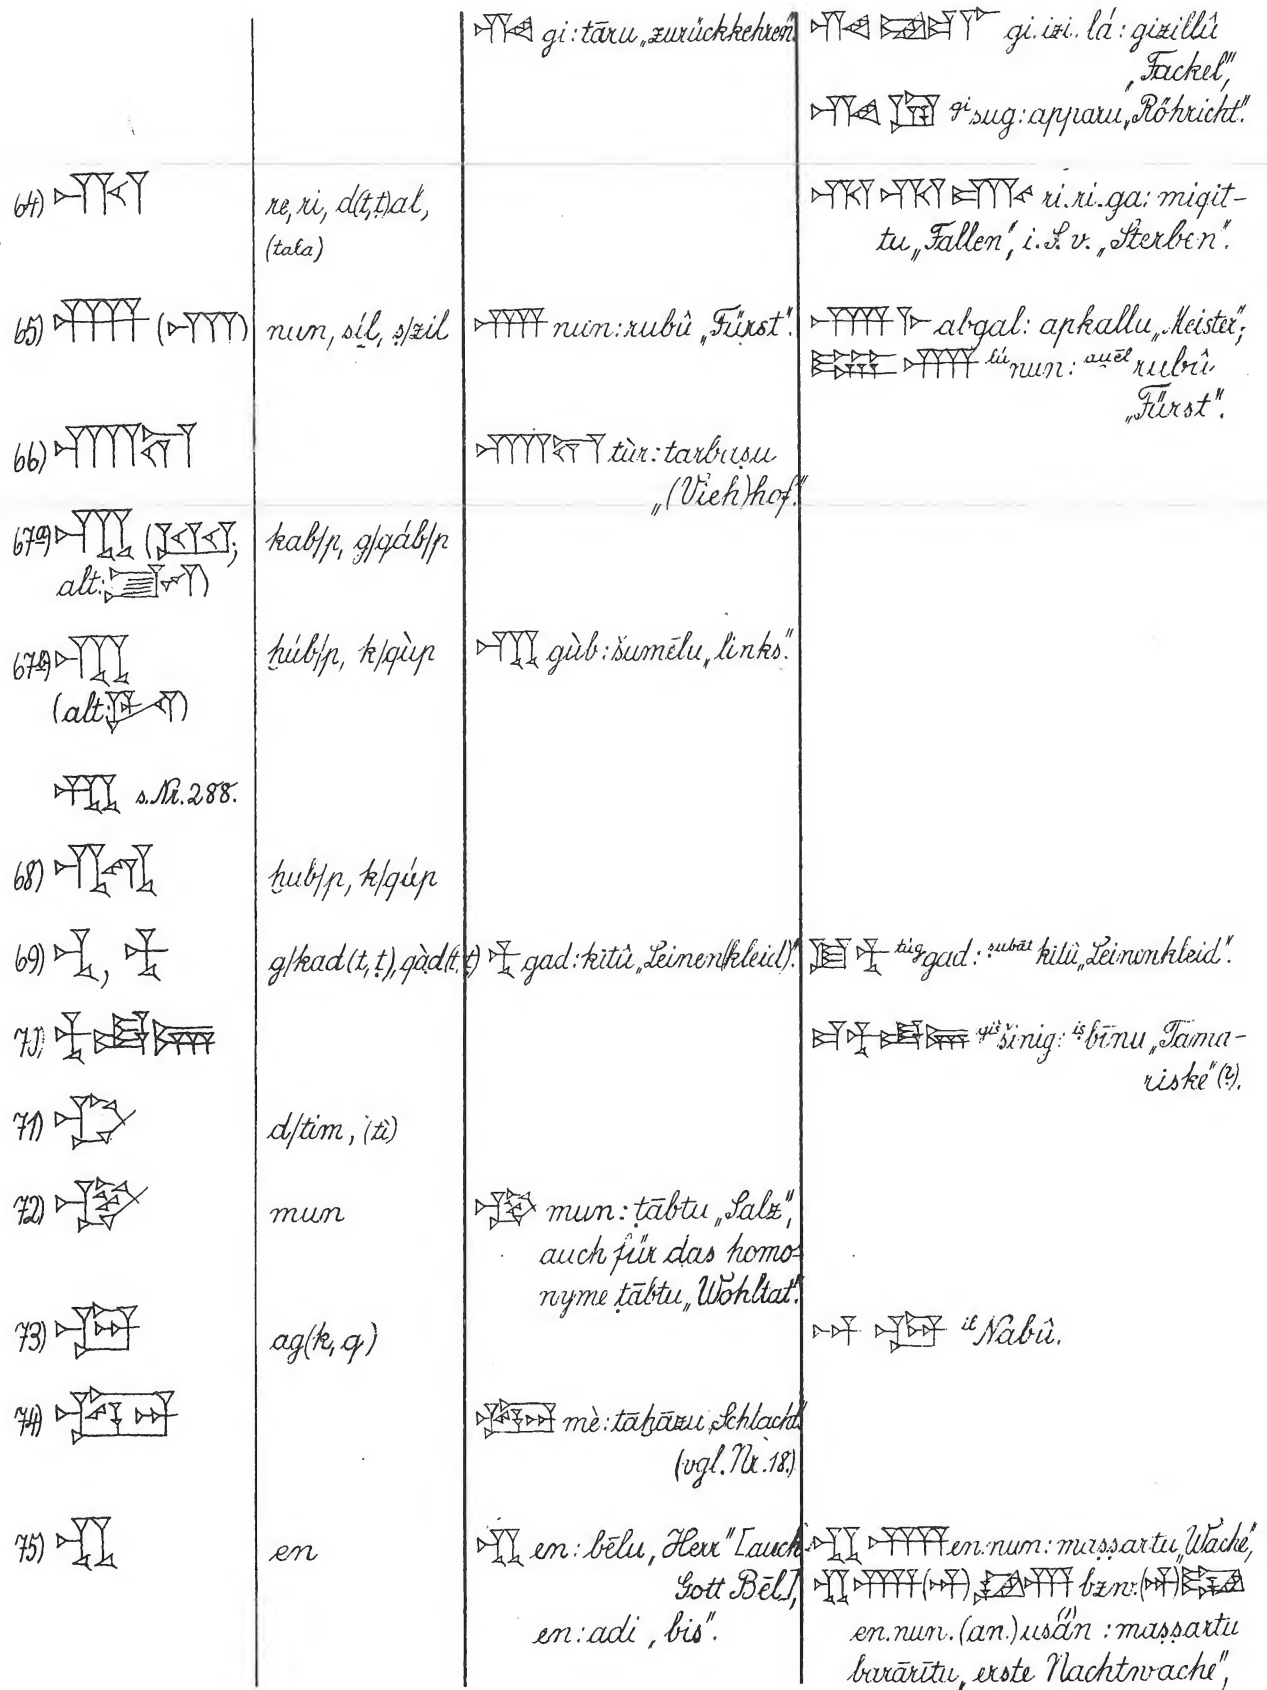 gi: tāru „zurückkehren“.
gi.izi.lá: gizillû
„Fackel“,
gi sug: apparu „Röhricht“.
64)
re, ri, d(t,ṭ)al,
(tala)
ri.ri.ga: miqit-
tu „Fallen“, i.S.v. „Sterben“.
65)
nun, síl, ṣ/zil
nun: rubû „Fürst“.
abgal: apkallu „Meister“;
lú nun: awēl rubû
„Fürst“.
66)
tùr: tarbaṣu
„(Vieh)hof“.
67a)
alt:
kab/p, g/qáb/p
67b)
(alt: )
ḫúb/p, k/qùp
gùb: šumēlu „links“.
s. Nr. 288.
68)
ḫub/p, k/qúp
69)
g/kad(t,ṭ), qàd(t,ṭ)
gad: kitû „Leinen(kleid)“.
túg gad: ṣubāt kitû „Leinenkleid“.
70)
giš šinig: iṣ bīnu „Tama-
riske“ (?).
71)
d/tim, (tì)
72)
mun
mun: ṭābtu „Salz“,
auch für das homo-
nyme ṭābtu „Wohltat“.
73)
ag(k,q)
il Nabû.
74)
mè: tāḫāzu „Schlacht“
(vgl. Nr. 18.)
75)
en
en: bēlu „Herr“ [auch
Gott Bēl],
en: adi „bis“.
en.nun: maṣṣartu „Wache“,
bzw.
en.nun.(an.)usán: maṣṣartu
barārītu „erste Nachtwache“,